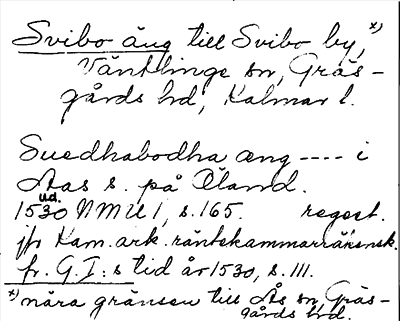 Svibo äng till Svibo by,ˣ⁾
Ventlinge sn, Gräs-
gårds hd, Kalmar l.
Suedhabodha æng ---- i
Aas s. på Öland.
u.d.
1530 NMU 1, s. 165. regest.
jfr Kam. ark. räntekammarräkensk.
fr. G. I:s tid år 1530, s. 111.
ˣ⁾ nära gränsen till Ås sn, Gräs-
gårds hd.